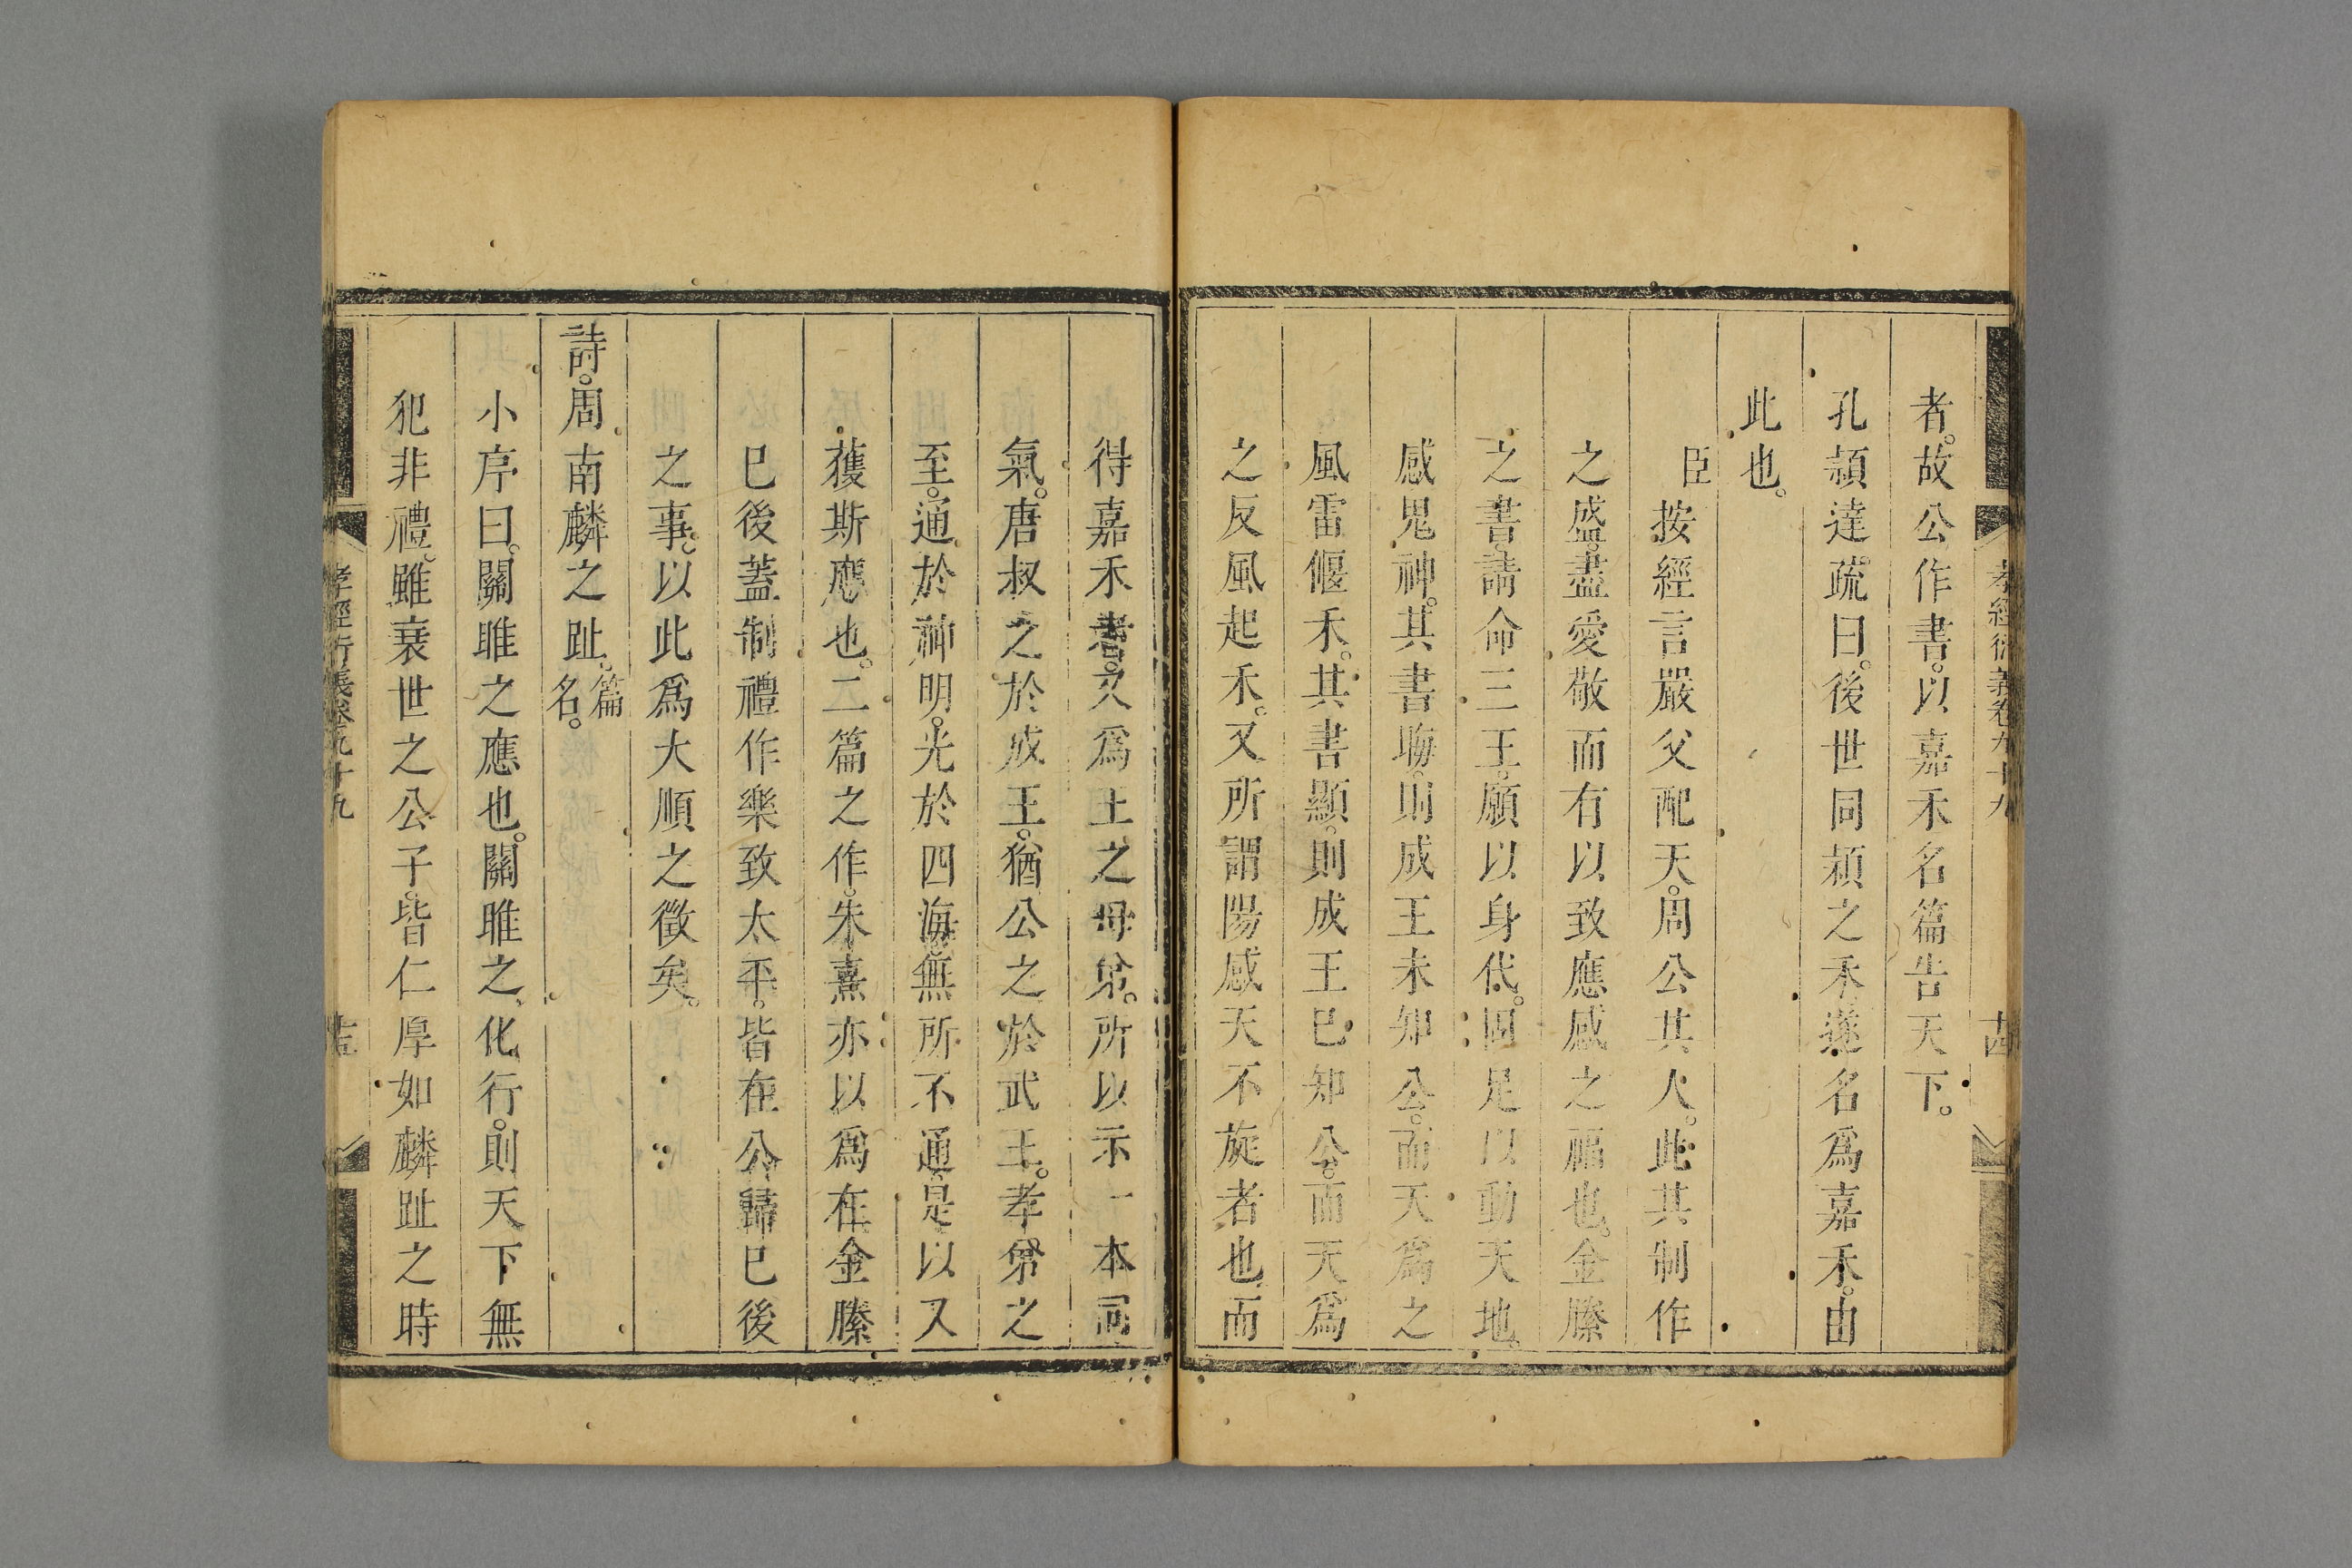 孝經衍義卷九十九
十四
者。故公作書。以嘉禾名篇告天下。
孔穎達疏曰。後世同穎之禾。遂名爲嘉禾。由
此也。
臣按經言嚴父配天。周公其人。此其制作
之盛。盡愛敬而有以致應感之福也。金縢
之書。請命三王。願以身代。固足以動天地。
感鬼神。其書晦。則成王未知公。而天爲之
風雷偃禾。其書顯。則成王已知公。而天爲
之反風起禾。又所謂陽感天不旋者也。而
得嘉禾者。又爲王之母弟。所以示一本同
氣。唐叔之於成王。猶公之於武王。孝弟之
至。通於神明。光於四海。無所不通。是以又
獲斯應也。二篇之作。朱熹亦以爲在金縢
已後。蓋制禮作樂致太平。皆在公歸已後
之事。以此爲大順之徵矣。
詩。周南麟之趾。篇名。
小序曰。關雎之應也。關雎之化行。則天下無
犯非禮。雖衰世之公子。皆仁厚如麟趾之時
孝經衍義卷九十九